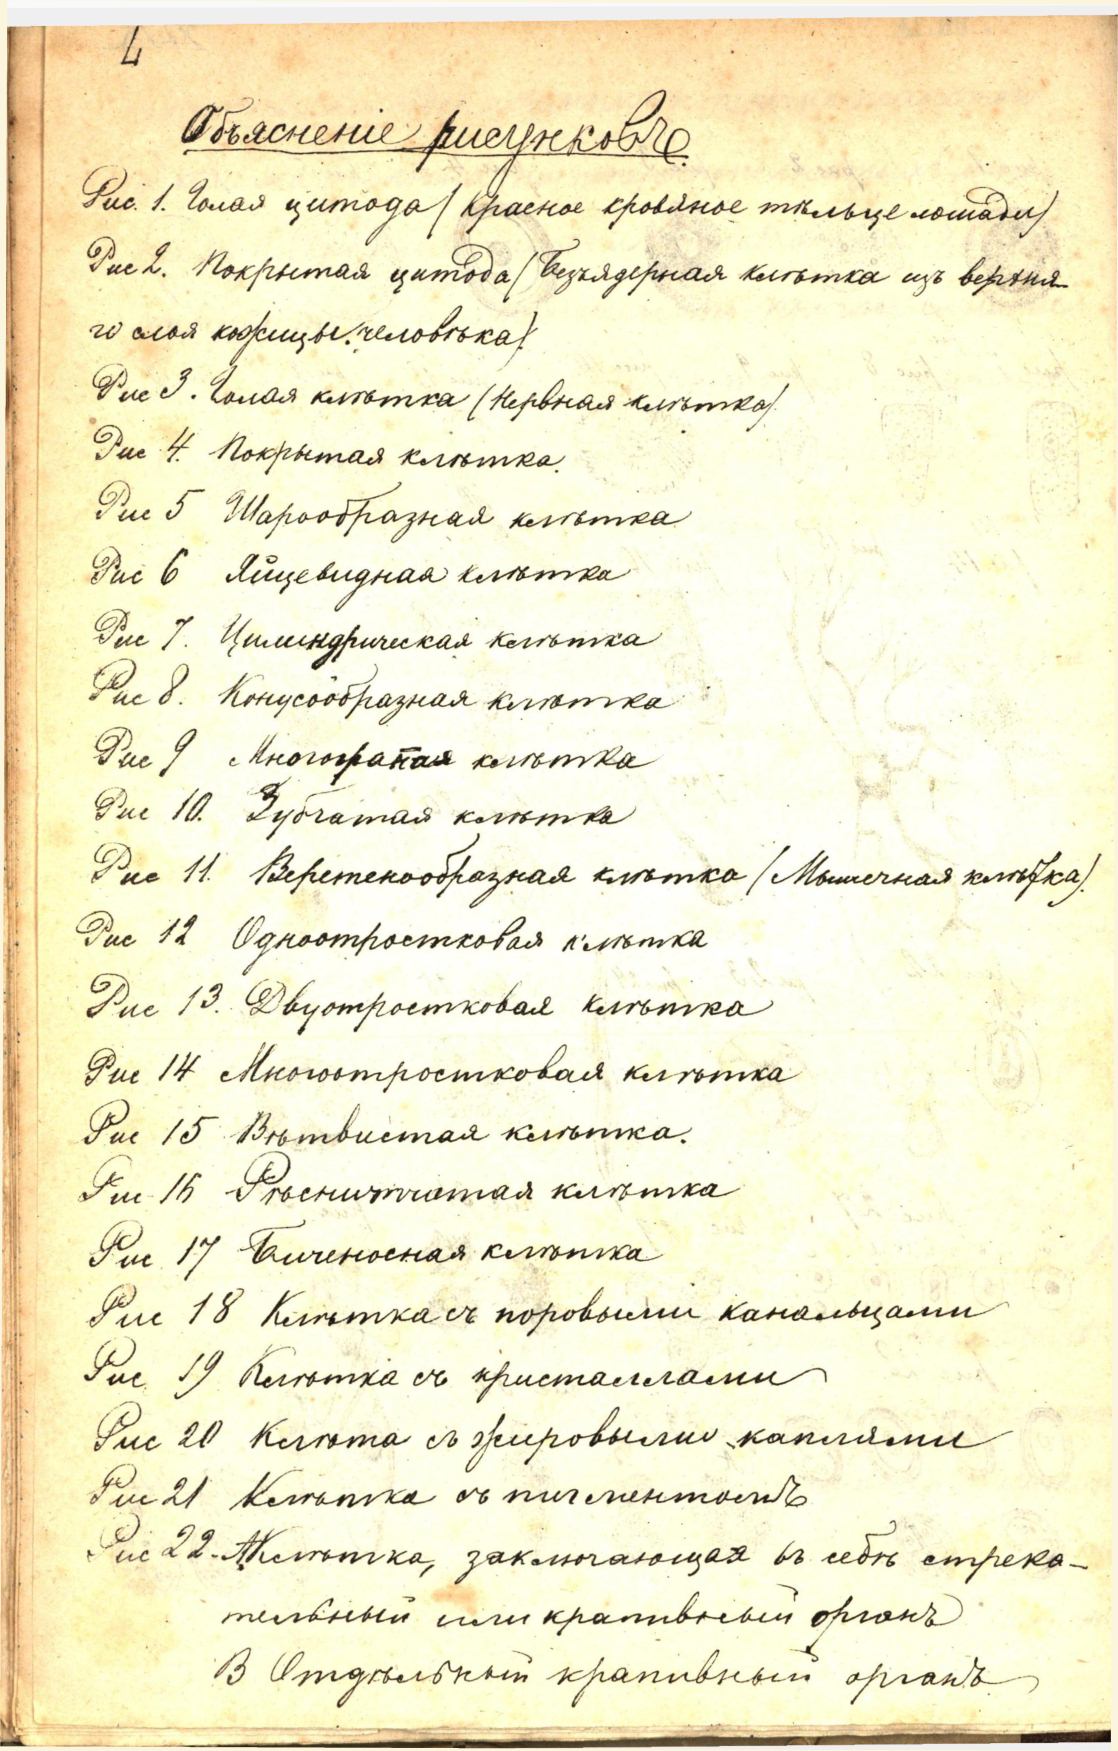 4
Объясненіе рисунковъ.
Рис. 1. Голая цитода (красное кровяное тѣльце лошади)
Рис 2. Покрытая цитода (Безъядерная клѣтка изъ верхня-
го слоя кожицы человѣка).
Рис 3. Голая клѣтка (Нервная клѣтка).
Рис 4. Покрытая клѣтка.
Рис 5 Шарообразная клѣтка
Рис 6 Яйцевидная клѣтка
Рис 7. Цилиндрическая клѣтка
Рис 8. Конусообразная клѣтка
Рис 9 Многограная клѣтка
Рис 10. Зубчатая клѣтка
Рис 11. Веретенообразная клѣтка (Мышечная клѣтка).
Рис 12 Одноотростковая клѣтка
Рис 13. Двуотростковая клѣтка
Рис 14 Многоотростковая клѣтка
Рис 15 Вѣтвистая клѣтка.
Рис 16 Рѣснитчатая клѣтка
Рис 17 Биченосная клѣтка
Рис 18 Клѣтка съ поровыми канальцами
Рис. 19 Клѣтка съ кристаллами
Рис 20 Клѣта съ жировыми каплями
Рис 21 Клѣтка съ пигментомъ
Рис 22. А Клѣтка, заключающая въ себѣ стрека-
тельный или крапивный органъ
В Отдѣльный крапивный органъ